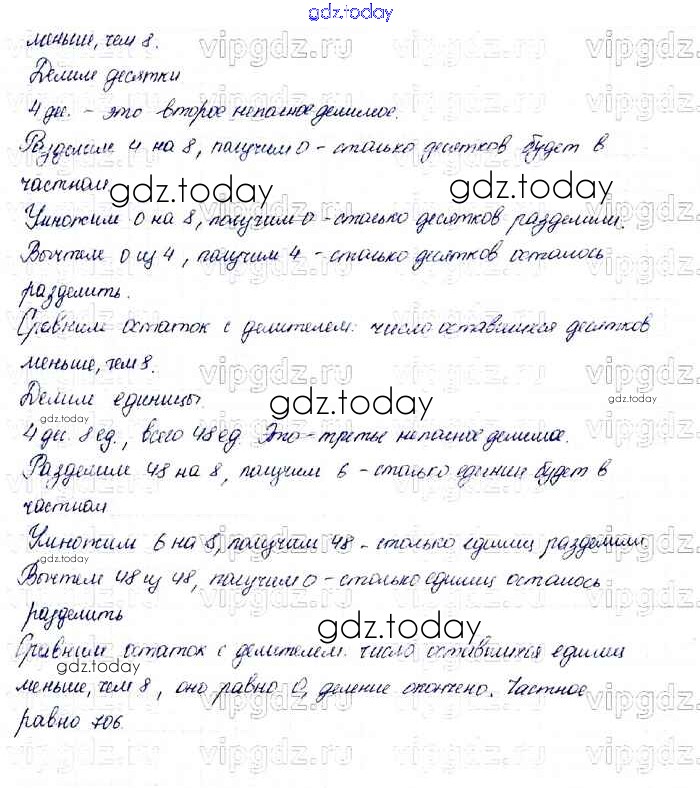 gdz.today
меньше, чем 8.
Делим десятки
4 дес. - это второе неполное делимое.
Разделим 4 на 8, получим 0 - столько десятков будет в
частном
Умножим 0 на 8, получим 0 - столько десятков разделили.
Вычтем 0 из 4, получим 4 - столько десятков осталось
разделить.
Сравним остаток с делителем: число оставшихся десятков
меньше, чем 8.
Делим единицы.
4 дес. 8 ед., всего 48 ед. Это - третье неполное делимое.
Разделим 48 на 8, получим 6 - столько единиц будет в
частном
Умножим 6 на 8, получим 48 - столько единиц разделили
Вычтем 48 из 48, получим 0 - столько единиц осталось
разделить
Сравним остаток с делителем: число оставшихся единиц
меньше, чем 8, оно равно 0, деление окончено. Частное
равно 706.